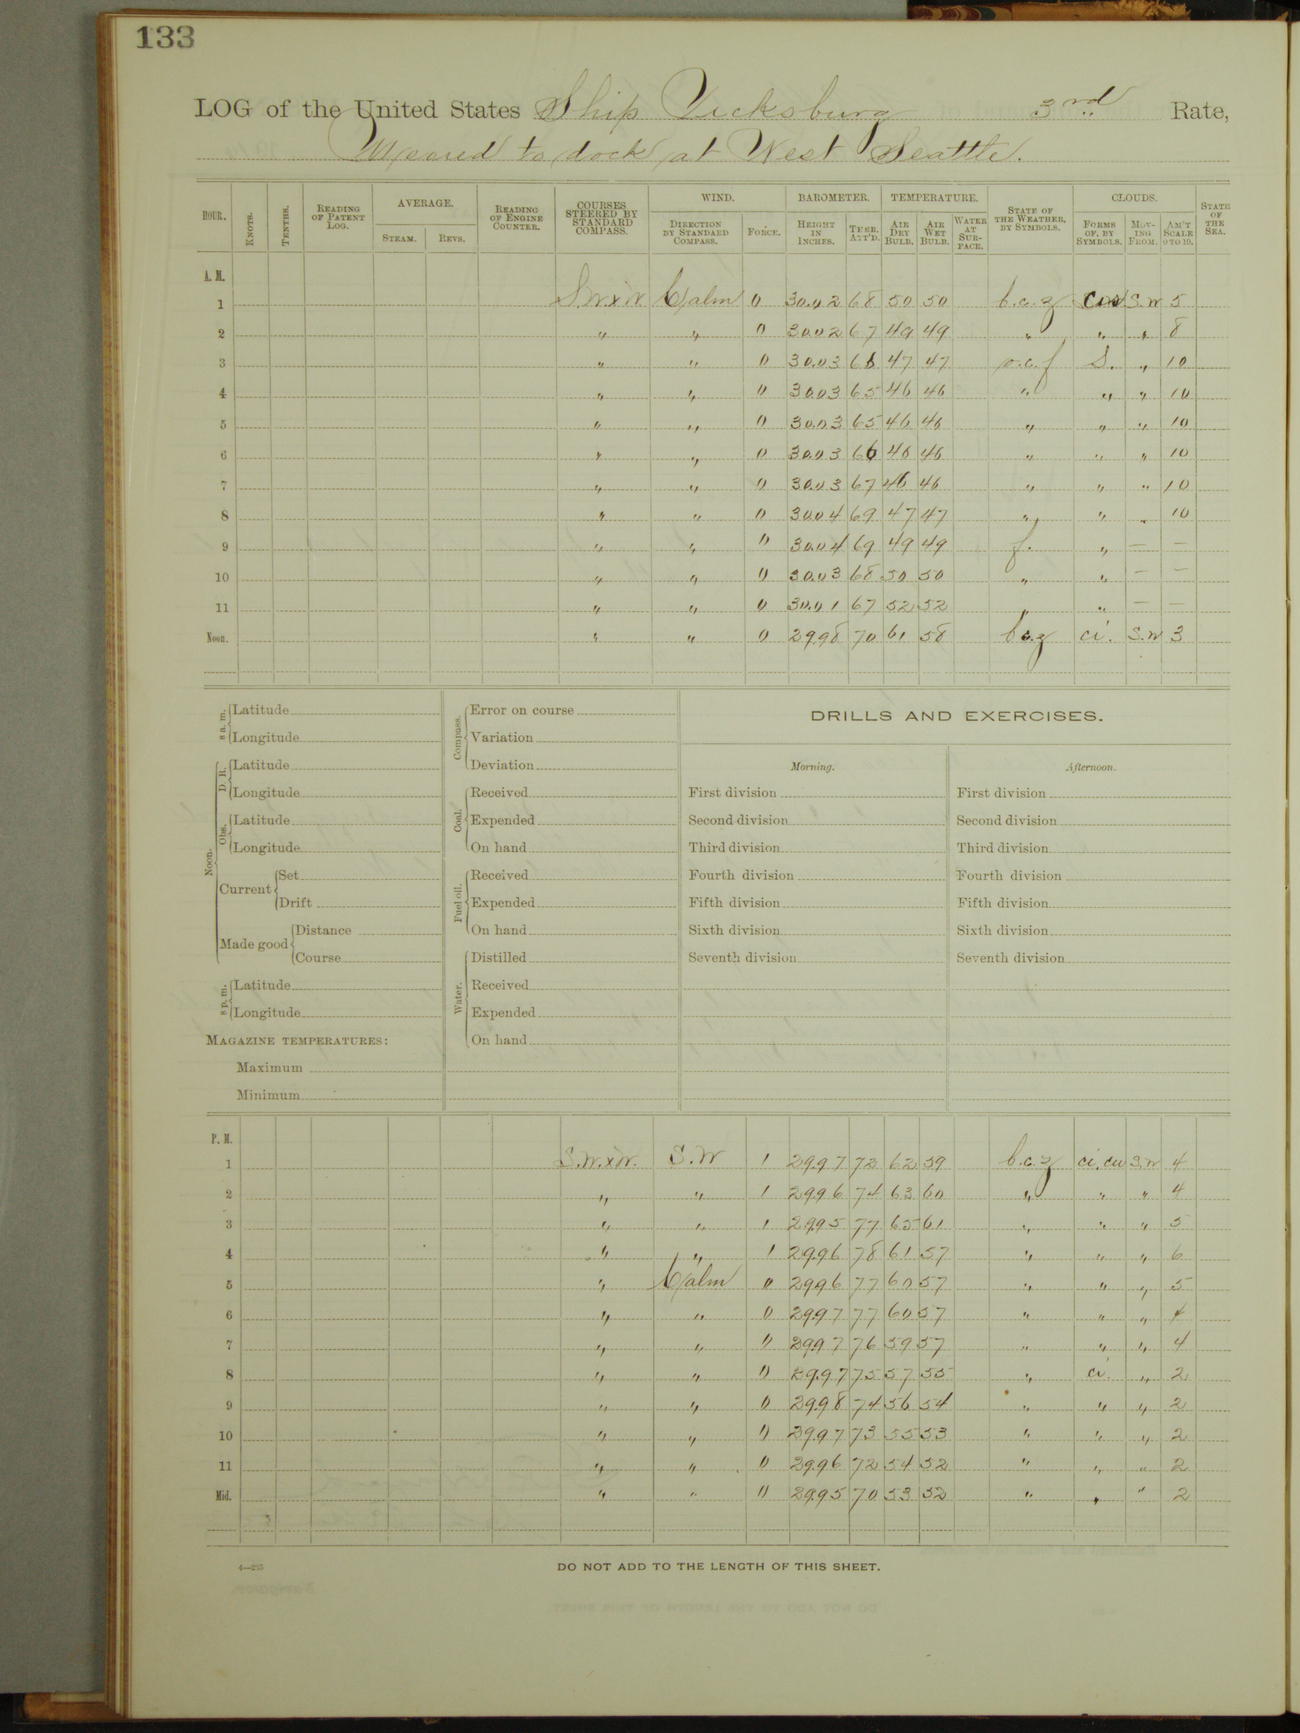 133
LOG of the United States Ship Vicksburg 3rd Rate,
Moored to dock at West Seattle.
HOUR. KNOTS. TENTHS. READING OF PATENT LOG. AVERAGE. STEAM. REVS. READING OF ENGINE COUNTER. COURSES STEERED BY STANDARD COMPASS. WIND. DIRECTION BY STANDARD COMPASS. FORCE. BAROMETER. HEIGHT IN INCHES. THER. ATT'D. TEMPERATURE. AIR DRY BULB. AIR WET BULB. WATER AT SURFACE. STATE OF THE WEATHER, BY SYMBOLS. CLOUDS. FORMS OF, BY SYMBOLS. MOVING FROM. AM'T SCALE 0 TO 10. STATE OF THE SEA.
A. M.
1 S.W.xW. Calm 0 30.02 68 50 50 b.c.z S.W 5
2 " " 0 30.02 67 49 49 " " " 8
3 " " 0 30.03 66 47 47 o.c.f S. " 10
4 " " 0 30.03 65 46 46 " " " 10
5 " " 0 30.03 65 46 46 " " " 10
6 " " 0 30.03 66 46 46 " " " 10
7 " " 0 30.03 67 46 46 " " " 10
8 " " 0 30.04 69 47 47 " " " 10
9 " " 0 30.04 69 49 49 f. " — —
10 " " 0 30.03 68 50 50 " " — —
11 " " 0 30.01 67 52 52 " " — —
Noon. " " 0 29.98 70 61 58 b.c.z ci. S.W 3
8 a. m. Latitude
Longitude
Noon. D. R. Latitude
Longitude
Obs. Latitude
Longitude
Current Set
Drift
Made good Distance
Course
8 p. m. Latitude
Longitude
MAGAZINE TEMPERATURES:
Maximum
Minimum
Compass. Error on course
Variation
Deviation
Coal. Received
Expended
On hand
Fuel oil. Received
Expended
On hand
Water. Distilled
Received
Expended
On hand
DRILLS AND EXERCISES.
Morning. Afternoon.
First division First division
Second division Second division
Third division Third division
Fourth division Fourth division
Fifth division Fifth division
Sixth division Sixth division
Seventh division Seventh division
P. M.
1 S.W.xW. S.W 1 29.97 72 62 59 b.c.z ci.cu S.W 4
2 " " 1 29.96 74 63 60 " " " 4
3 " " 1 29.95 77 65 61 " " " 5
4 " " 1 29.96 78 61 57 " " " 6
5 " Calm 0 29.96 77 60 57 " " " 5
6 " " 0 29.97 77 60 57 " " " 4
7 " " 0 29.97 76 59 57 " " " 4
8 " " 0 29.97 75 57 55 " ci. " 2
9 " " 0 29.98 74 56 54 " " " 2
10 " " 0 29.97 73 55 53 " " " 2
11 " " 0 29.96 72 54 52 " " " 2
Mid. " " 0 29.95 70 53 52 " " " 2
DO NOT ADD TO THE LENGTH OF THIS SHEET.